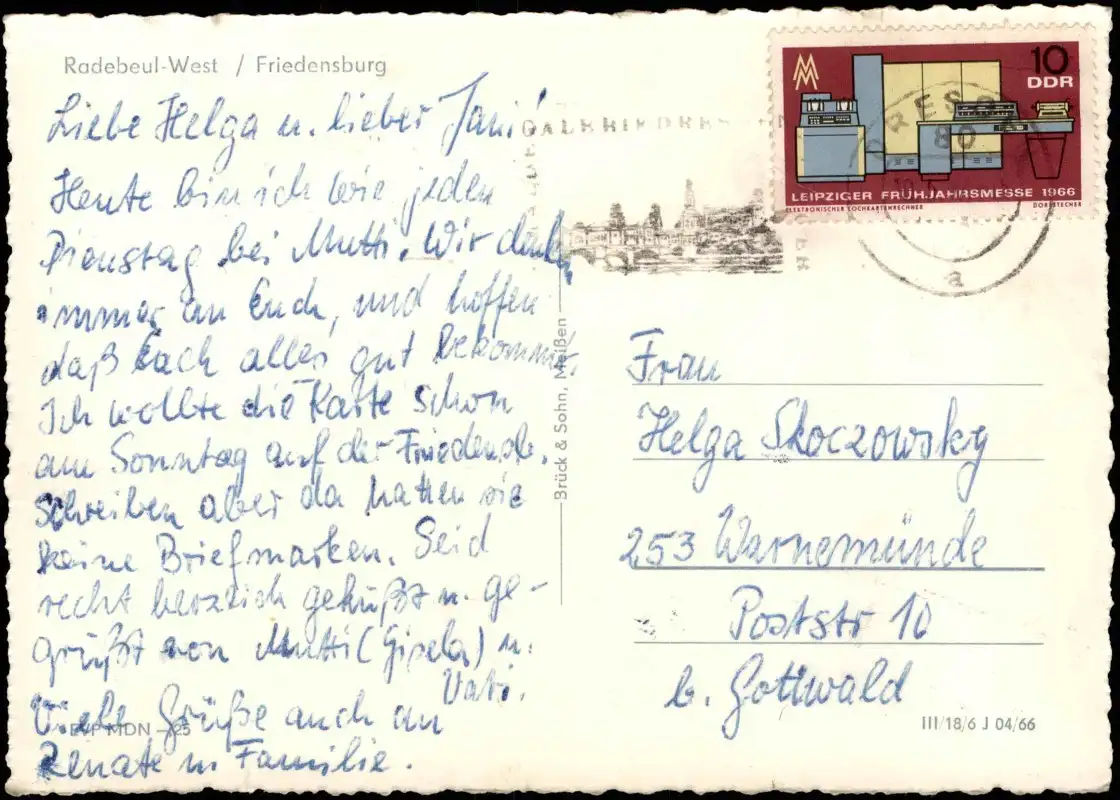 Radebeul-West / Friedensburg
Liebe Helga u. lieber Jani!
Heute bin ich wie jeden
Dienstag bei Mutti. Wir denken
immer an Euch, und hoffen
daß Euch alles gut bekommt.
Ich wollte die Karte schon
am Sonntag auf der Friedensb.
schreiben aber da hatten sie
keine Briefmarken. Seid
recht herzlich geküßt u. ge-
grüßt von Mutti (Gisela) u.
Vati.
Viele Grüße auch an
Renate u Familie.
EVP MDN -,25
Brück & Sohn, Meißen
GALERIE DRES
10
DDR
LEIPZIGER FRÜHJAHRSMESSE 1966
ELEKTRONISCHER LOCHKARTENRECHNER
DORFSTECHER
DRESD
80
a
Frau
Helga Skoczowsky
253 Warnemünde
Poststr 10
b. Gottwald
III/18/6 J 04/66